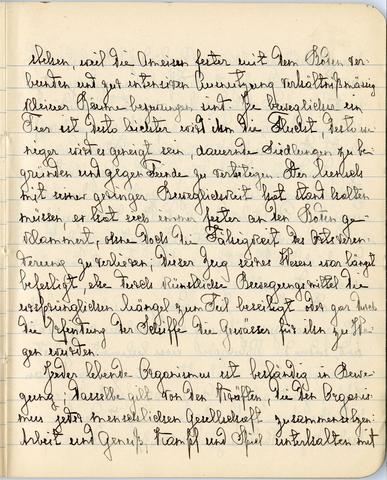 stehen, weil die Ameisen fester mit dem Boden ver-
bunden und zur intensiven Benützung verhältnißmässig
kleiner Räume gezwungen sind. Je beweglicher ein
Tier ist desto leichter wird ihm die Flucht, desto we-
niger wird es geneigt sein, dauernde Siedlungen zu be-
gründen und gegen Feinde zu verteidigen. Der Mensch
mit seiner geringen Beweglichkeit hat stand halten
müssen, er hat sich immer fester an den Boden ge-
klammert, ohne doch die Fähigkeit des Ortsverän-
derung zu verlieren; dieser Zug seines Wesens war längst
befestigt, ehe durch künstliche Bewegungsmittel die
ursprünglichen Mängel zum Teil beseitigt oder gar durch
die Erfindung der Schiffe die Gewässer für ihn zu We-
gen wurden.
Jeder lebende Organismus ist beständig in Bewe-
gung; dasselbe gilt von den Kräften, die den Organis-
mus jeder menschlichen Gesellschaft zusammensetzen:
Arbeit und Genuß, Kampf und Spiel unterhalten mit